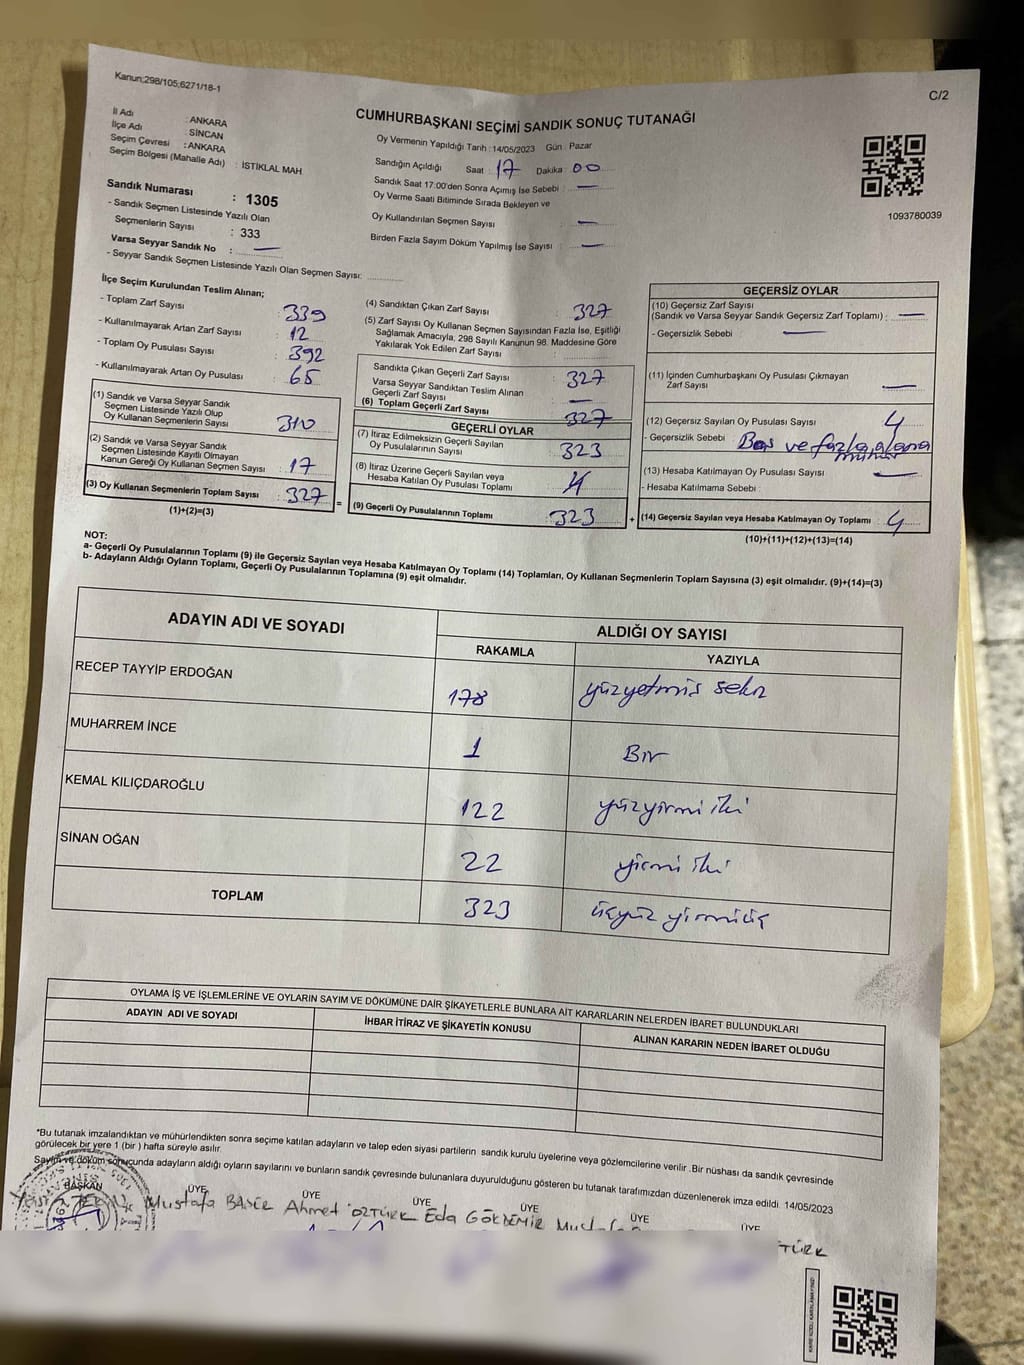 Kanun;298/105;6271/18-1
C/2
CUMHURBAŞKANI SEÇİMİ SANDIK SONUÇ TUTANAĞI
İl Adı : ANKARA
İlçe Adı : SİNCAN
Seçim Çevresi : ANKARA
Seçim Bölgesi (Mahalle Adı) : İSTİKLAL MAH.
Sandık Numarası : 1305
- Sandık Seçmen Listesinde Yazılı Olan
Seçmenlerin Sayısı : 333
Varsa Seyyar Sandık No : —
- Seyyar Sandık Seçmen Listesinde Yazılı Olan Seçmen Sayısı:
Oy Vermenin Yapıldığı Tarih :14/05/2023 Gün : Pazar
Sandığın Açıldığı Saat : 17 Dakika : 00
Sandık Saat 17:00'den Sonra Açımış İse Sebebi : —
Oy Verme Saati Bitiminde Sırada Bekleyen ve
Oy Kullandırılan Seçmen Sayısı : —
Birden Fazla Sayım Döküm Yapılmış İse Sayısı : —
1093780039
İlçe Seçim Kurulundan Teslim Alınan;
- Toplam Zarf Sayısı : 339
- Kullanılmayarak Artan Zarf Sayısı : 12
- Toplam Oy Pusulası Sayısı : 392
- Kullanılmayarak Artan Oy Pusulası : 65
(1) Sandık ve Varsa Seyyar Sandık
Seçmen Listesinde Yazılı Olup
Oy Kullanan Seçmenlerin Sayısı : 310
(2) Sandık ve Varsa Seyyar Sandık
Seçmen Listesinde Kayıtlı Olmayan
Kanun Gereği Oy Kullanan Seçmen Sayısı : 17
(3) Oy Kullanan Seçmenlerin Toplam Sayısı : 327
(1)+(2)=(3)
(4) Sandıktan Çıkan Zarf Sayısı : 327
(5) Zarf Sayısı Oy Kullanan Seçmen Sayısından Fazla İse, Eşitliği
Sağlamak Amacıyla, 298 Sayılı Kanunun 98. Maddesine Göre
Yakılarak Yok Edilen Zarf Sayısı :
Sandıkta Çıkan Geçerli Zarf Sayısı : 327
Varsa Seyyar Sandıktan Teslim Alınan
Geçerli Zarf Sayısı : —
(6) Toplam Geçerli Zarf Sayısı : 327
GEÇERLİ OYLAR
(7) İtiraz Edilmeksizin Geçerli Sayılan
Oy Pusulalarının Sayısı : 323
(8) İtiraz Üzerine Geçerli Sayılan veya
Hesaba Katılan Oy Pusulası Toplamı :
(9) Geçerli Oy Pusulalarının Toplamı : 323
=
+
GEÇERSİZ OYLAR
(10) Geçersiz Zarf Sayısı
(Sandık ve Varsa Seyyar Sandık Geçersiz Zarf Toplamı) : —
- Geçersizlik Sebebi : —
(11) İçinden Cumhurbaşkanı Oy Pusulası Çıkmayan
Zarf Sayısı : —
(12) Geçersiz Sayılan Oy Pusulası Sayısı : 4
- Geçersizlik Sebebi : Boş ve fazla alana
mühür
(13) Hesaba Katılmayan Oy Pusulası Sayısı : —
- Hesaba Katılmama Sebebi :
(14) Geçersiz Sayılan veya Hesaba Katılmayan Oy Toplamı : 4
(10)+(11)+(12)+(13)=(14)
NOT:
a- Geçerli Oy Pusulalarının Toplamı (9) ile Geçersiz Sayılan veya Hesaba Katılmayan Oy Toplamı (14) Toplamları, Oy Kullanan Seçmenlerin Toplam Sayısına (3) eşit olmalıdır. (9)+(14)=(3)
b- Adayların Aldığı Oyların Toplamı, Geçerli Oy Pusulalarının Toplamına (9) eşit olmalıdır.
ADAYIN ADI VE SOYADI
ALDIĞI OY SAYISI
RAKAMLA
YAZIYLA
RECEP TAYYİP ERDOĞAN 178 yüzyetmiş sekiz
MUHARREM İNCE 1 Bir
KEMAL KILIÇDAROĞLU 122 yüzyirmi iki
SİNAN OĞAN 22 yirmi iki
TOPLAM 323 üçyüz yirmiüç
OYLAMA İŞ VE İŞLEMLERİNE VE OYLARIN SAYIM VE DÖKÜMÜNE DAİR ŞİKAYETLERLE BUNLARA AİT KARARLARIN NELERDEN İBARET BULUNDUKLARI
ADAYIN ADI VE SOYADI
İHBAR İTİRAZ VE ŞİKAYETİN KONUSU
ALINAN KARARIN NEDEN İBARET OLDUĞU
*Bu tutanak imzalandıktan ve mühürlendikten sonra seçime katılan adayların ve talep eden siyasi partilerin sandık kurulu üyelerine veya gözlemcilerine verilir .Bir nüshası da sandık çevresinde
görülecek bir yere 1 (bir ) hafta süreyle asılır.
Sayım ve döküm sonucunda adayların aldığı oyların sayılarını ve bunların sandık çevresinde bulunanlara duyurulduğunu gösteren bu tutanak tarafımızdan düzenlenerek imza edildi. 14/05/2023
BAŞKAN ÜYE ÜYE ÜYE ÜYE ÜYE ÜYE
Mustafa Ahmet ÖZTÜRK Eda GÖKDEMİR
TÜRK